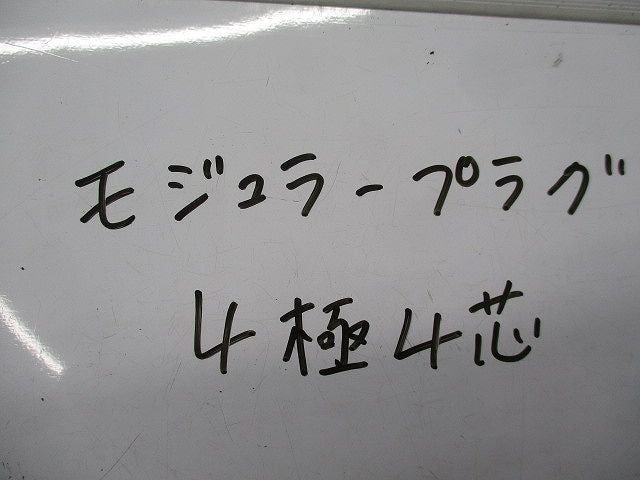 モジュラープラグ
4極4芯